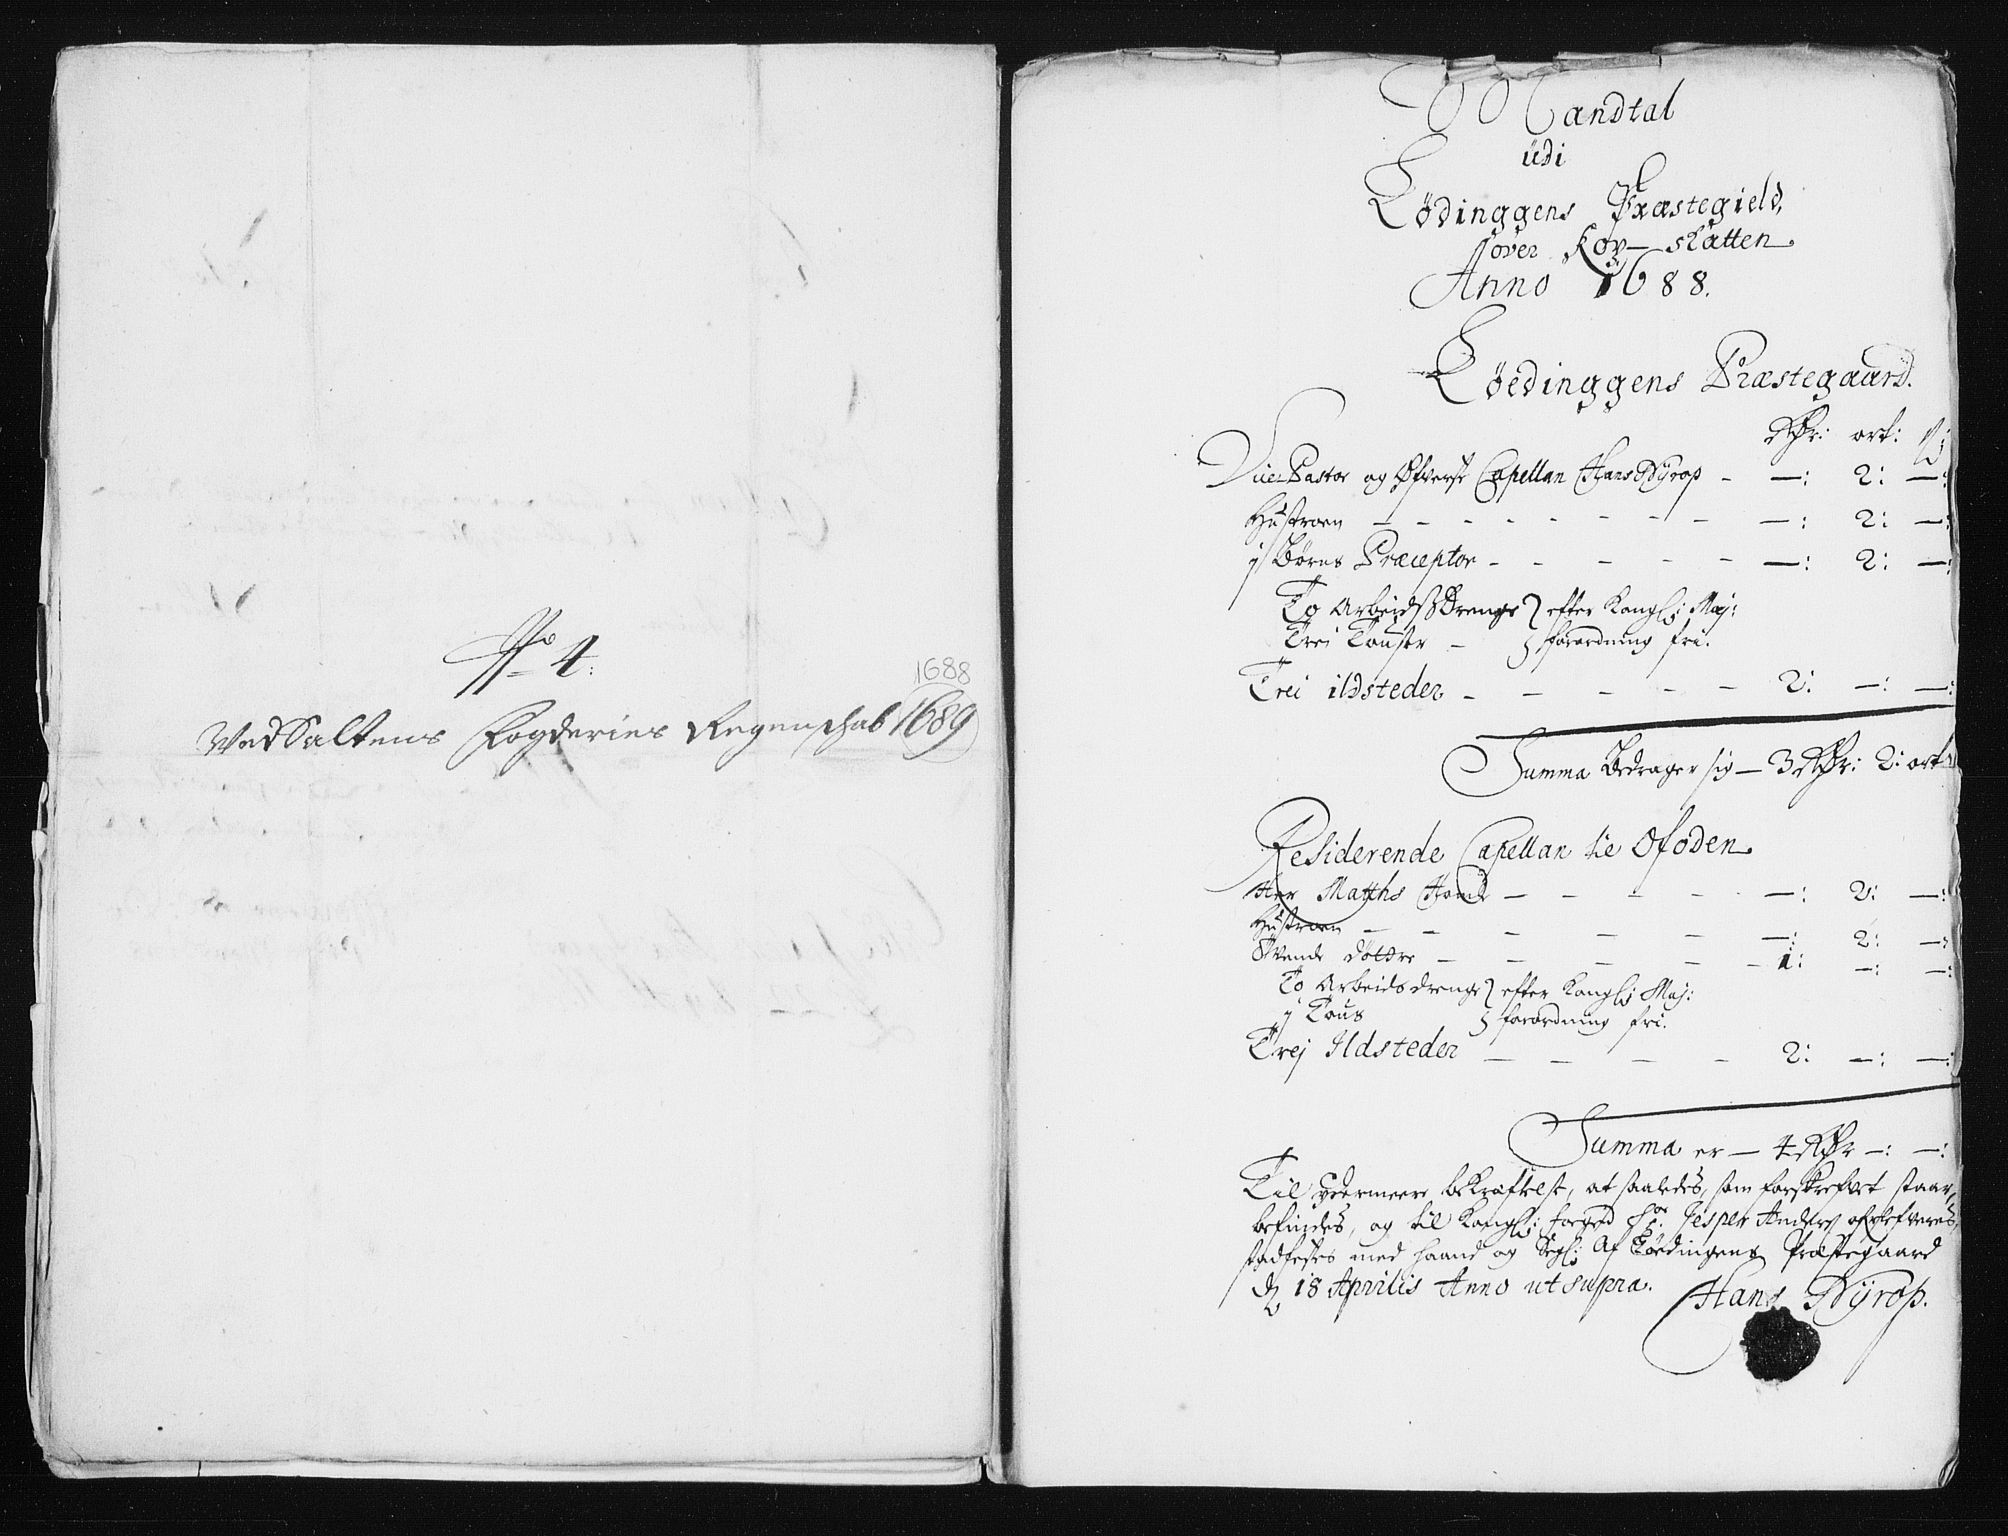 No 4:
1688
Ved Saltens Fogderies Regenschab 1689
Mandtal
udi
Lødinggens Præstegield,
over Kop-skatten
Anno 1688.
Løedinggens Præstegaard.
Rdr: ort: ß:
Vice Pastor og Øfverste Capellan Hans Dyrop - —: 2: —:
Hustroen - - - - - - - - —: 2: —:
j Børns Præceptor - - - - - - —: 2: —:
To Arbeidsdrenge } efter Kongl: Maj:
Trei Touser - } forordning fri.
Trei ildsteder - - - - - - 2: —: —:
Summa Bedrager sig — 3 Rdr: 2: ort
Residerende Capellan til Ofoden
Her Matths - - - - - —: 2: —:
Hustroen - - - - - - —: 2: —:
Tvende døttre - - - - - 1: —: —:
To Arbeidsdrenge } efter Kongl: Maj:
j Tous } forordning fri.
Trej Ildsteder - - - - 2: —: —:
Summa er — 4 Rdr —: —:
Til ydermeere bekræftelse, at saaledes, som forskrefvet staar,
befindes, og til Kongl: foged Sr. Jesper Anders ofverlefveres,
stadfestes med haand og Segl: Af Løedingens Præstegaard
d 18 Aprilis Anno ut supra.
Hans Dyrop.